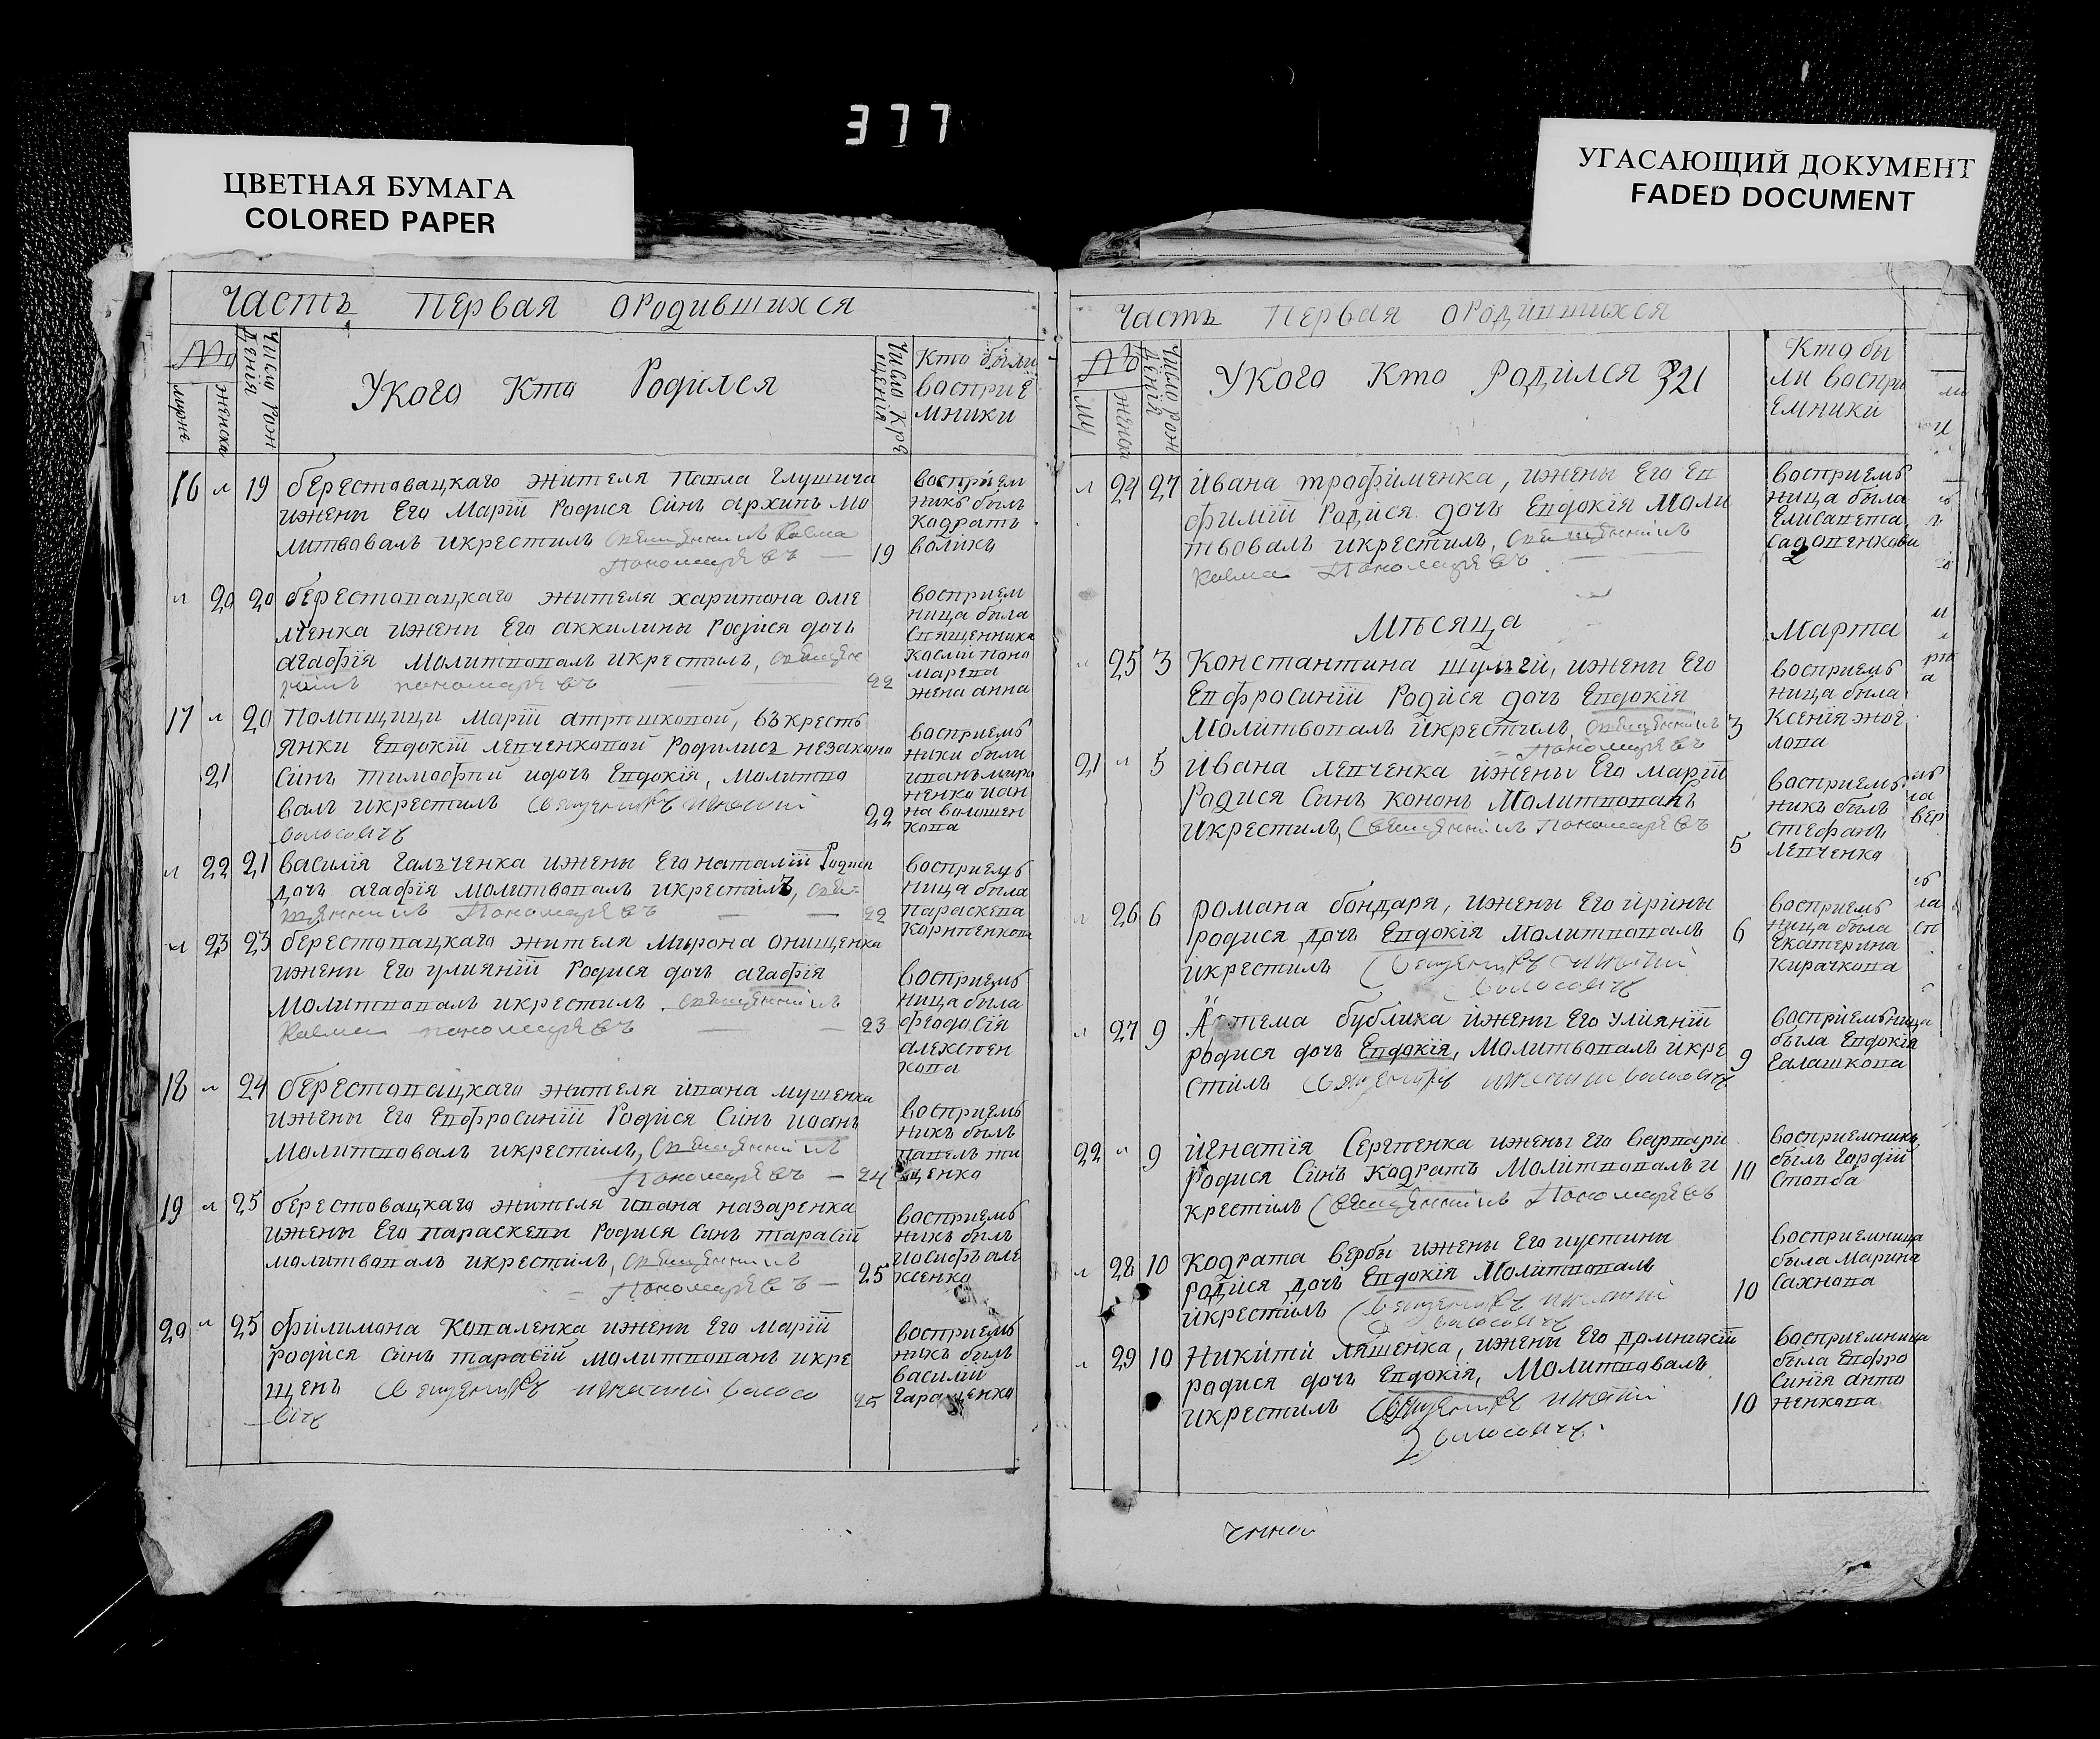 377
ЦВЕТНАЯ БУМАГА
COLORED PAPER
УГАСАЮЩИЙ ДОКУМЕНТ
FADED DOCUMENT
Часть Первая ородившихся
№
мужс
женска
Число рож
денія
Укого Кто Родился
Число Кре
щенія
Кто были
восприе
мники
16 л 19 берестовацкаго жителя Павла Глушича
ижены Его Маріи Родися Синъ архипъ Мо
литвовалъ икрестилъ священникъ Косма
Пономаревъ
19
восприем
никъ былъ
Кодратъ
воликъ
л 20 20 берестовацкаго жителя харитона оме
лченка ижени Его аккилины Родися дочь
агафія Молитвовалъ икрестилъ, священ
никъ пономаревъ
22
восприем
ница была
священника
Космы поно
марева
жена анна
17 л 20 Помѣщици Маріи атрѣшковой, въкресть
янки Евдокіи левченковой Родились незаконо
21 синъ тимофѣй идочь Евдокія, молитво
валъ икрестилъ Священникъ игнатий
волосовичъ
22
восприемъ
ники были
иванъ миро
ненко иан
на волошен
кова
л 22 21 василія Гальченка ижены Его наталіи Родися
дочь агафія молитвовалъ икрестилъ, свя=
щенникъ Пономаревъ
22
восприемъ
ница была
Параскева
Корнѣенкова
л 23 23 берестовацкаго жителя Мирона онищенка
ижени Его улияніи Родися дочь агафія
Молитвовалъ икрестилъ священникъ
Косма пономаревъ
23
восприемъ
ница была
феодосія
алексѣен
кова
18 л 24 берестовацкаго жителя ивана мушенка
ижены Его Евфросиніи Родися Синъ иоанъ
Молитвовалъ икрестилъ, Священникъ
Пономаревъ
24
восприемъ
никъ былъ
павелъ ти
щенко
19 л 25 берестовацкаго жителя ивана назаренка
ижены Его параскевы Родися Синъ тарасій
молитвовалъ икрестилъ, священникъ
Пономаревъ
25
восприемъ
никъ былъ
иосифъ але
ксенко
20 л 25 филимона Коваленка ижены Его Маріи
родися синъ тарасій молитвованъ икре
щенъ Священникъ игнатий волосо
вичъ
25
восприемъ
никъ былъ
василій
Гаращенко
Часть Первая ородившихся
№
му
женска
Число рож
денія
Укого Кто Родился 321
Кто бы
ли воспри
емники
л 24 27 ивана трофименка, ижены Его Ев
фиміи Родися дочь Евдокія Моли
твовалъ икрестилъ, священникъ
Косма Пономаревъ
восприемъ
ница была
Елисавета
садовенкова
Мѣсяца Марта
л 25 3 Константина шульги, ижены Его
Евфросиніи Родися дочь Евдокія
Молитвовалъ икрестилъ, священникъ
Пономаревъ
3
восприемъ
ница была
Ксенія жог
лова
21 л 5 ивана левченка ижены Его Маріи
Родися Синъ Кононъ Молитвованъ
икрестилъ, Священникъ Пономаревъ
5
восприемъ
никъ былъ
стефанъ
левченко
л 26 6 романа бондаря, ижены Его ирины
родися дочь Евдокія Молитвовалъ
икрестилъ Священникъ игнатий
волосовичъ
6
восприемъ
ница была
Екатерина
Кирачкова
л 27 9 Артема бублика ижени Его Улияніи
родися дочь Евдокія, Молитвовалъ икре
стилъ Священникъ игнатий волосовичъ
9
восприемъница
была Евдокія
Галашкова
22 л 9 игнатія Сергѣенка ижены Его Варвари
Родися Синъ Кодратъ Молитвовалъ и
крестилъ Священникъ Пономаревъ
10
восприемникъ
былъ Гордій
Стовба
л 28 10 Кодрата вербы ижены Его иустины
родися дочь Евдокія Молитвовалъ
икрестилъ Священникъ игнатий
волосовичъ
10
восприемница
была Марина
Сахнова
л 29 10 Никити ляшенка, ижены Его домникіи
родися дочь Евдокія, Молитвовалъ
икрестилъ Священникъ игнатий
волосовичъ.
10
восприемница
была Евфро
синія анто
ненкова